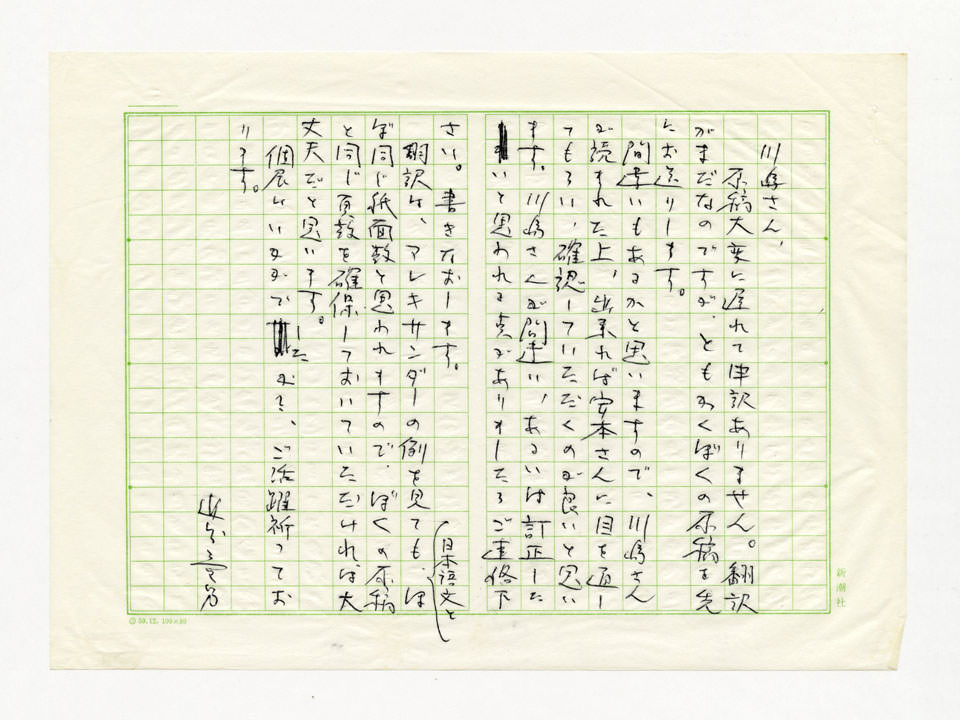 川嶋さん、
原稿大変に遅れて申訳ありません。翻訳
がまだなのですが、ともかくぼくの原稿を先
にお送りします。
間違いもあるかと思いますので、川嶋さん
が読まれた上、出来れば安本さんに目を通し
てもらい、確認していただくのが良いと思い
ます。川嶋さんが間違い、あるいは訂正した
いと思われる点がありましたらご連絡下
さい。書きなおします。
翻訳は、アレキサンダーの例を見ても、ほ
(日本語文と
ぼ同じ紙面数と思われますので、ぼくの原稿
と同じ頁数を確保しておいていただければ大
丈夫だと思います。
個展はいかがでしたか？、ご活躍祈ってお
ります。
新潮社